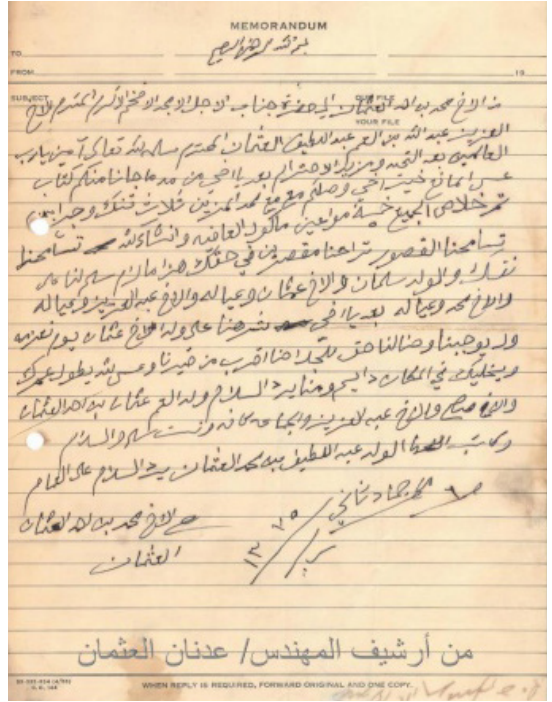 MEMORANDUM
بسم الله الرحمن الرحيم
TO
FROM
19
SUBJECT
OUR FILE
YOUR FILE
من الاخ محمد عبد الله العثمان الى حضرة جناب الاجل الامجد الافخم الاكرم المحترم الاخ
العزيز عبد الله بن العم عبد اللطيف العثمان المحترم سلمه الله تعالى آمين يارب
العالمين بعد التحية ومزيد الاحترام بعد يا اخي من مده ماجانا منكم كتاب
عسى المانع خير اخي وصلكم مع محمد ثلاث تنك
تمر خلاص الجميع خمسة مواعين ماكول العافيه وانشاء الله تسامحنا
تسامحنا القصور ترانا مقصرين في حقك هذا مالزم سلم لنا على
نفسك والولد سلمان والاخ عثمان وعياله والاخ عبد العزيز وعياله
والاخ محمد وعياله بعد يا اخي على ولد الاخ عثمان يوم
ولا يوجبنا وحنا لنا حق اقرب من غيرنا وعسى الله يطول عمرك
ويخليك في المكان دايم ومنا يرد السلام ولد العم عثمان بن احمد العثمان
والاخ صالح والاخ عبد العزيز والجماعه كافه وانت سالم والسلام
وكاتب الولد عبد اللطيف بن محمد العثمان يرد السلام على العمام
جماد ثاني
١٣٧٥
الاخ محمد عبد الله العثمان
العثمان
من أرشيف المهندس/ عدنان العثمان
WHEN REPLY IS REQUIRED, FORWARD ORIGINAL AND ONE COPY.